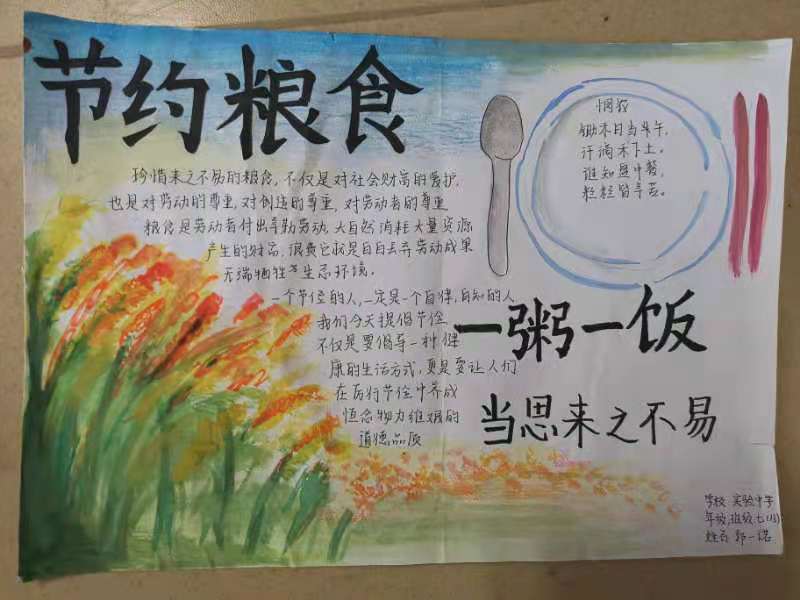 节约粮食
珍惜来之不易的粮食,不仅是对社会财富的爱护,
也是对劳动的尊重,对创造的尊重,对劳动者的尊重.
粮食是劳动者付出辛勤劳动,大自然消耗大量资源
产生的财富.浪费它就是白白丢弃劳动成果
无端牺牲生态环境.
一个节俭的人,一定是一个自律,自知的人
我们今天提倡节俭
不仅是要倡导一种健
康的生活方式,更是要让人们
在厉行节俭中养成
恒念物力维艰的
道德品质
悯农
锄禾日当午,
汗滴禾下土.
谁知盘中餐,
粒粒皆辛苦.
一粥一饭
当思来之不易
学校 实验中学
年级,班级:七
姓名 郭一诺